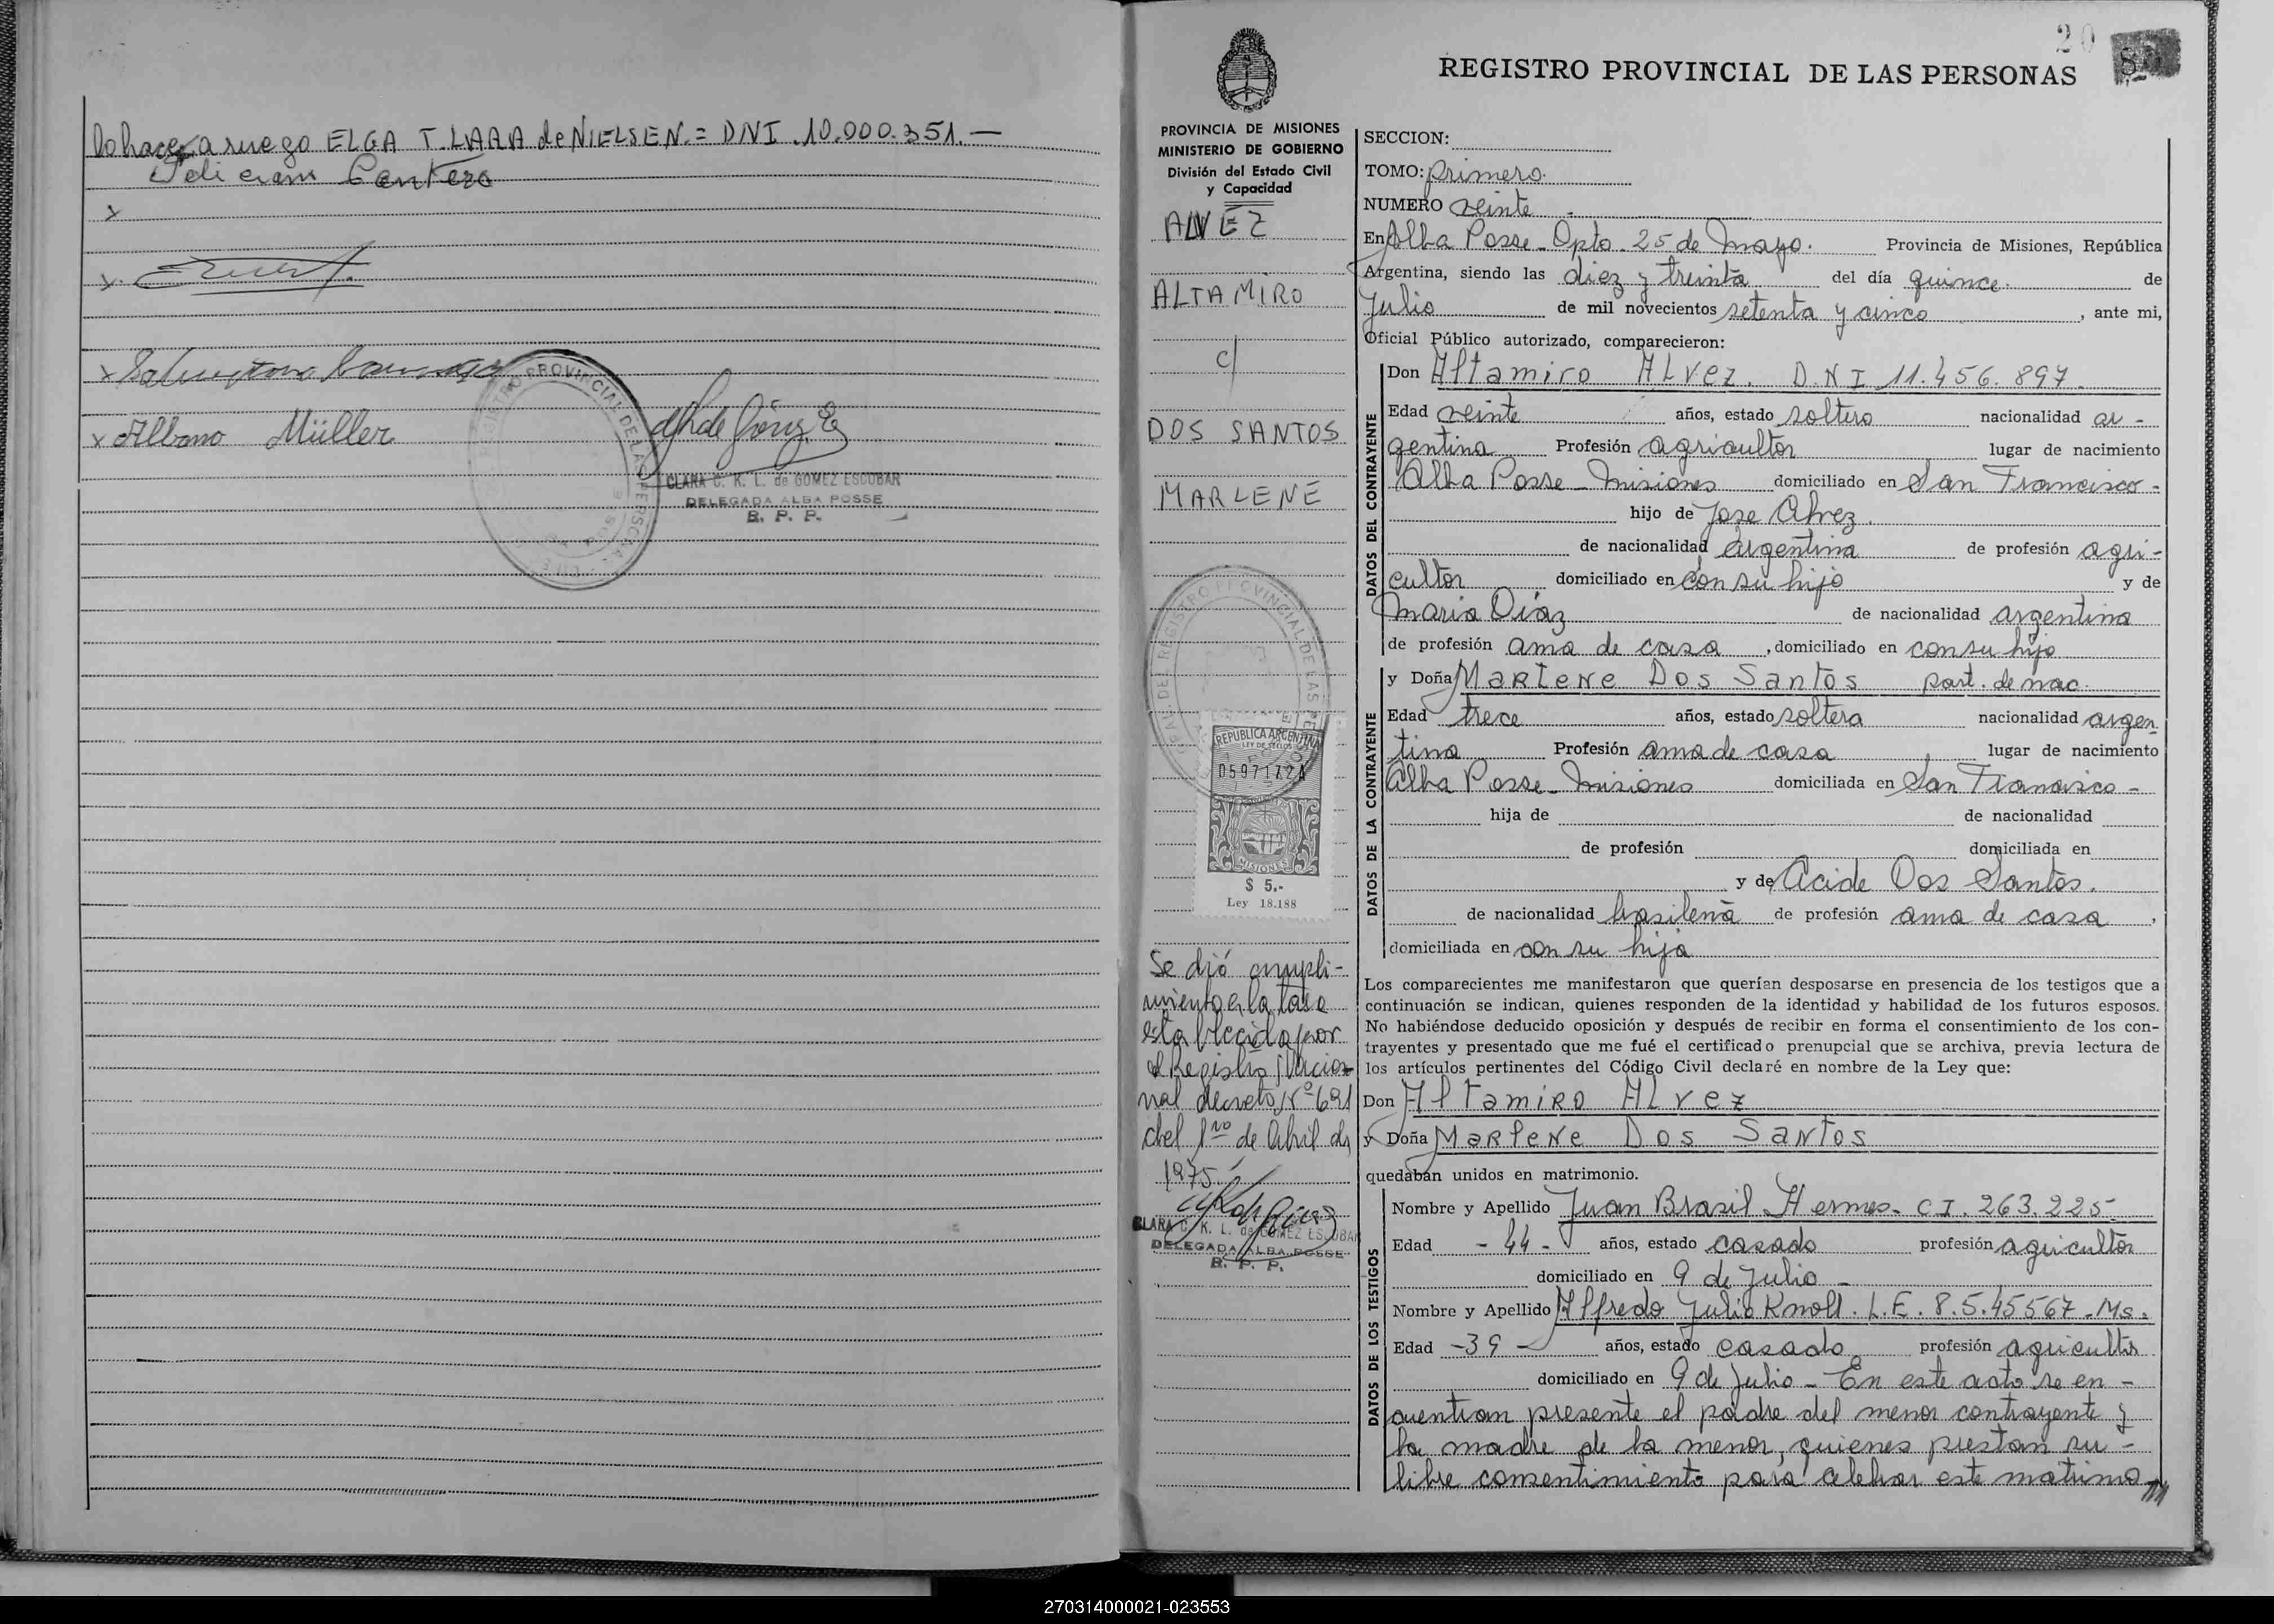 lo hace a ruego ELGA T. LARA de NIELSEN.= DNI. 10.000.351.—
Cantero
x
x.
x
x Albano Müller
REGISTRO PROVINCIAL DE LAS PERSONAS
CLARA C. K. L. de GOMEZ ESCOBAR
DELEGADA ALBA POSSE
R. P. P.
20
REGISTRO PROVINCIAL DE LAS PERSONAS
PROVINCIA DE MISIONES
MINISTERIO DE GOBIERNO
División del Estado Civil
y Capacidad
ALVEZ
ALTAMIRO
c/
DOS SANTOS
MARLENE
REPUBLICA ARGENTINA
LEY DE SELLOS
MISIONES
$ 5.-
Ley 18.188
Se dió cumpli-
miento a la tasa
establecida por
el Registro Nacio-
nal decreto Nº 691
del 1ro de Abril de
1975.
CLARA C. K. L. de GOMEZ ESCOBAR
DELEGADA ALBA POSSE
R. P. P.
SECCION:
TOMO: primero.
NUMERO veinte.
En Alba Posse - Dpto. 25 de Mayo. Provincia de Misiones, República
Argentina, siendo las diez y treinta del día quince. de
Julio de mil novecientos setenta y cinco, ante mi,
Oficial Público autorizado, comparecieron:
DATOS DEL CONTRAYENTE
Don Altamiro Alvez. D.N.I 11.456.897.
Edad veinte años, estado soltero nacionalidad ar-
gentina Profesión agricultor lugar de nacimiento
Alba Posse - Misiones domiciliado en San Francisco -
hijo de Jose Alvez.
de nacionalidad argentina de profesión agri-
cultor domiciliado en con su hijo y de
Maria Díaz de nacionalidad argentina
de profesión ama de casa, domiciliado en con su hijo
DATOS DE LA CONTRAYENTE
y Doña Marlene Dos Santos part. de nac.
Edad trece años, estado soltera nacionalidad argen
tina Profesión ama de casa lugar de nacimiento
Alba Posse - Misiones domiciliada en San Francisco -
hija de de nacionalidad
de profesión domiciliada en
y de Acide Dos Santos.
de nacionalidad brasileña de profesión ama de casa,
domiciliada en con su hija
Los comparecientes me manifestaron que querían desposarse en presencia de los testigos que a
continuación se indican, quienes responden de la identidad y habilidad de los futuros esposos.
No habiéndose deducido oposición y después de recibir en forma el consentimiento de los con-
trayentes y presentado que me fué el certificado prenupcial que se archiva, previa lectura de
los artículos pertinentes del Código Civil declaré en nombre de la Ley que:
Don Altamiro Alvez
y Doña Marlene Dos Santos
quedaban unidos en matrimonio.
DATOS DE LOS TESTIGOS
Nombre y Apellido Juan Brasil Hermes - C.I. 263.225-
Edad - 44 - años, estado casado profesión agricultor
domiciliado en 9 de Julio -
Nombre y Apellido Alfredo Julio Knoll. L.E. 8.5.45567-Ms.
Edad - 39 - años, estado casado profesión agricultor
domiciliado en 9 de Julio - En este acto se en-
cuentran presente el padre del menor contrayente y
la madre de la menor, quienes prestan su-
libre consentimiento para celebrar este matrimo
270314000021-023553